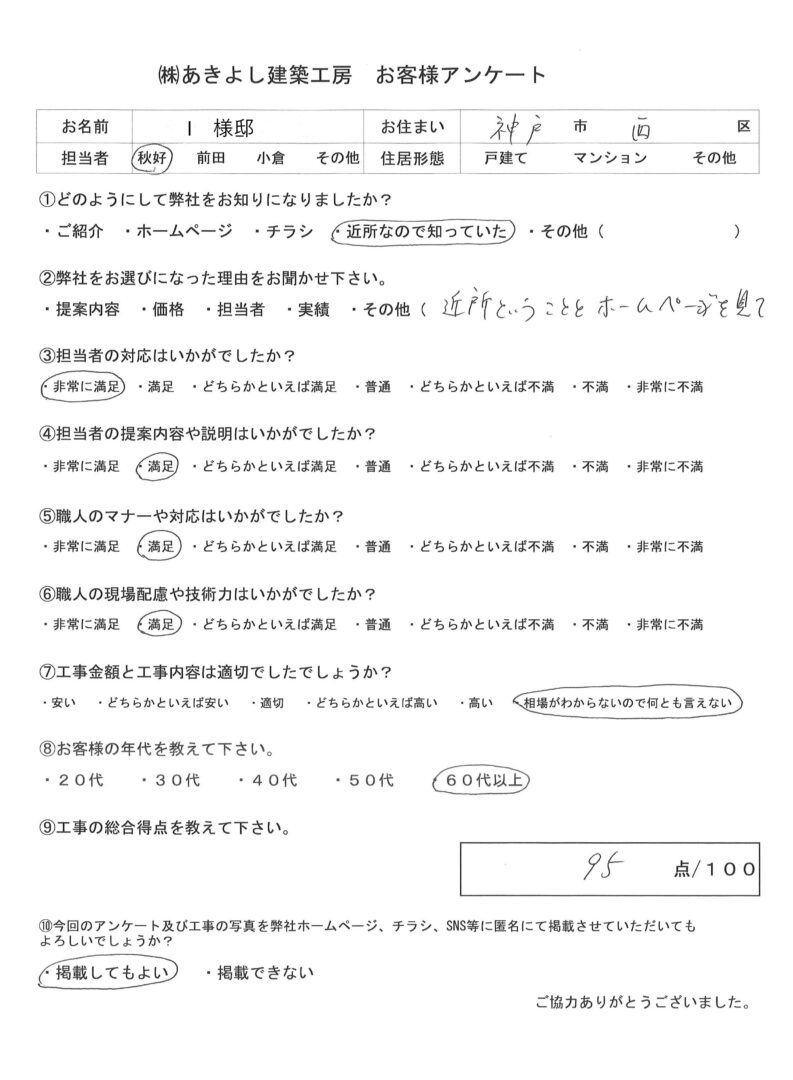 ㈱あきよし建築工房　お客様アンケート
お名前　I 様邸　お住まい　神戸 市 西 区
担当者　秋好　前田　小倉　その他　住居形態　戸建て　マンション　その他
①どのようにして弊社をお知りになりましたか？
・ご紹介　・ホームページ　・チラシ　・近所なので知っていた　・その他（　　　　　）
②弊社をお選びになった理由をお聞かせ下さい。
・提案内容　・価格　・担当者　・実績　・その他（ 近所ということと ホームページを見て
③担当者の対応はいかがでしたか？
・非常に満足　・満足　・どちらかといえば満足　・普通　・どちらかといえば不満　・不満　・非常に不満
④担当者の提案内容や説明はいかがでしたか？
・非常に満足　・満足　・どちらかといえば満足　・普通　・どちらかといえば不満　・不満　・非常に不満
⑤職人のマナーや対応はいかがでしたか？
・非常に満足　・満足　・どちらかといえば満足　・普通　・どちらかといえば不満　・不満　・非常に不満
⑥職人の現場配慮や技術力はいかがでしたか？
・非常に満足　・満足　・どちらかといえば満足　・普通　・どちらかといえば不満　・不満　・非常に不満
⑦工事金額と工事内容は適切でしたでしょうか？
・安い　・どちらかといえば安い　・適切　・どちらかといえば高い　・高い　・相場がわからないので何とも言えない
⑧お客様の年代を教えて下さい。
・２０代　・３０代　・４０代　・５０代　・６０代以上
⑨工事の総合得点を教えて下さい。
95 点/１００
⑩今回のアンケート及び工事の写真を弊社ホームページ、チラシ、SNS等に匿名にて掲載させていただいても
よろしいでしょうか？
・掲載してもよい　・掲載できない
ご協力ありがとうございました。